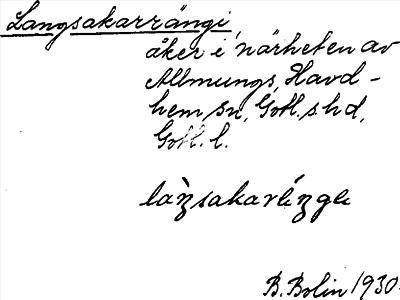 Langsakarrängi
åker i närheten av
Allmungs, Havd-
hem sn, Gotl. s. hd,
Gotl. l.
B. Bolin 1930.